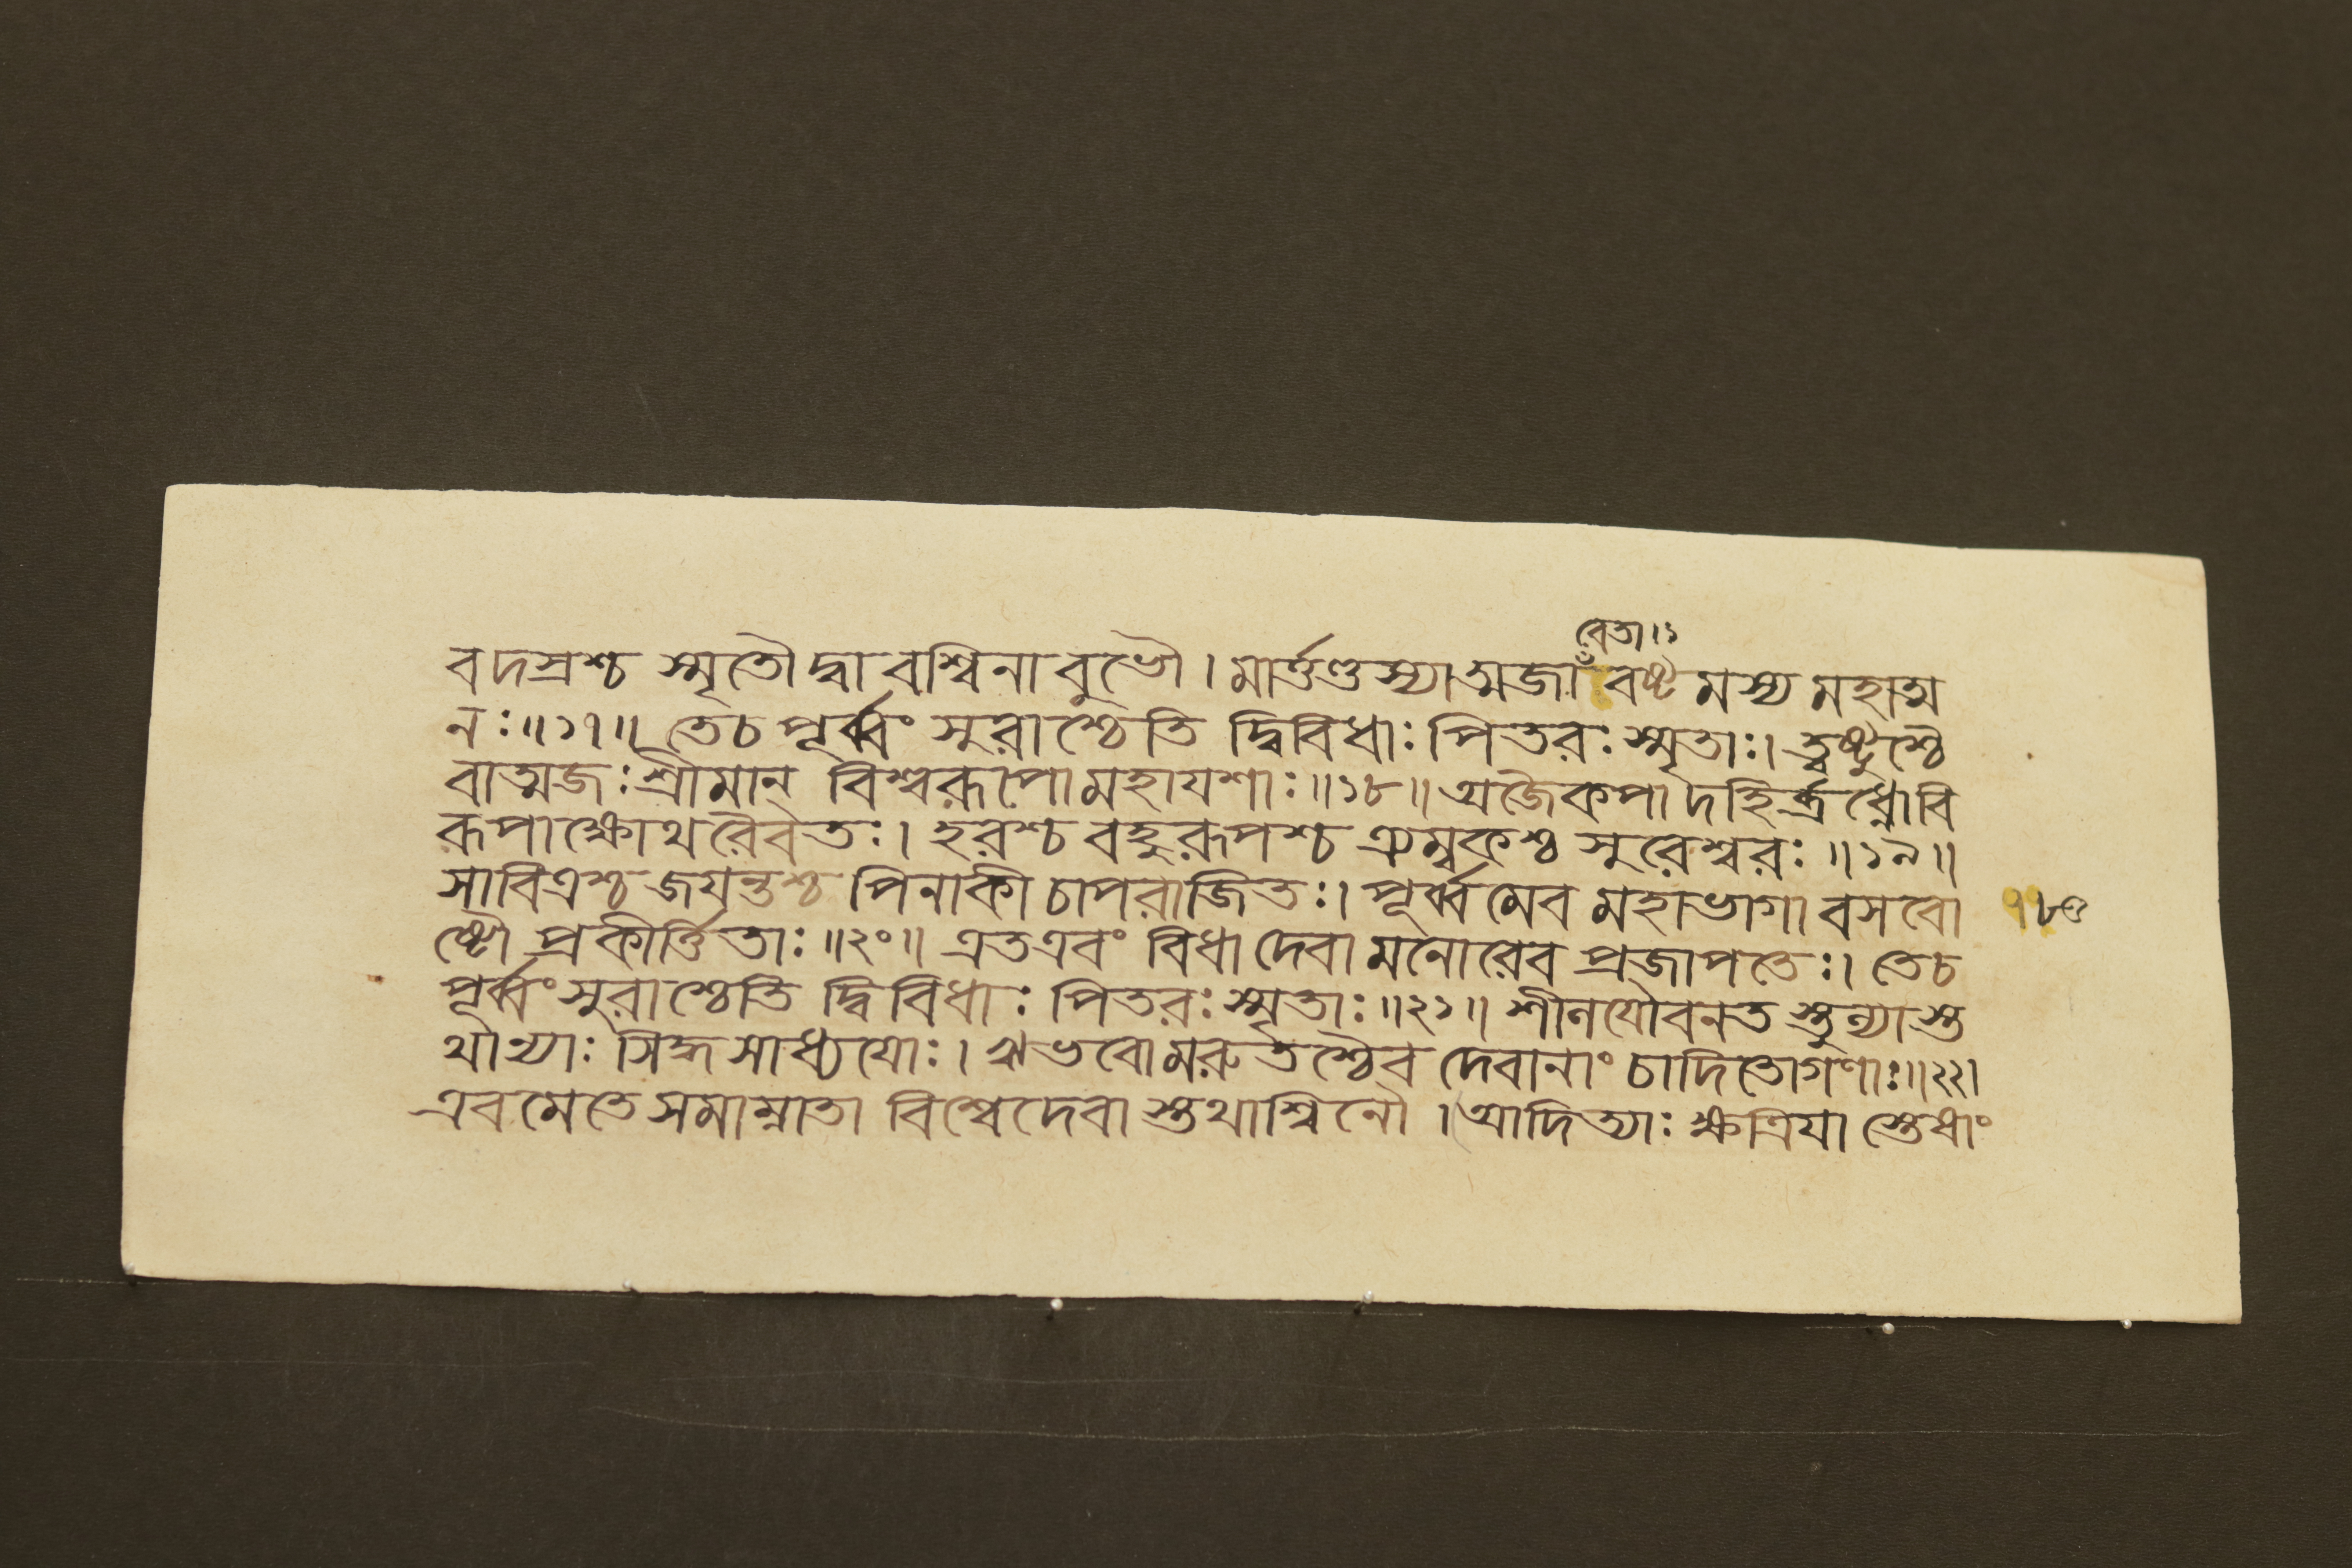 বেতা।১
বদস্রশ্চ স্মৃতৌ দ্বাবশ্বিনাবুভৌ। মার্ত্তণ্ডস্যাত্মজা বষ্টমস্য মহাত্ম
নঃ॥১৭॥ তেচ পূর্ব্বং সুরাশ্চেতি দ্বিবিধাঃ পিতরঃ স্মৃতাঃ। ত্বষ্টুশ্চৈ
বাত্মজঃ শ্রীমান্ বিশ্বরূপো মহাযশাঃ॥১৮॥ অজৈকপাদহির্ব্রধ্নোবি
রূপাক্ষোথরৈবতঃ। হরশ্চ বহুরূপশ্চ ত্র্যম্বকশ্চ সুরেশ্বরঃ॥১৯॥
সাবিত্রশ্চ জযন্তশ্চ পিনাকী চাপরাজিতঃ। পূর্ব্বমেব মহাভাগা বসবো ১৮৩
ষ্টৌ প্রকীর্ত্তিতাঃ॥২০॥ এতএবং বিধা দেবা মনোরেব প্রজাপতেঃ। তেচ
পূর্ব্বং সুরাশ্চেতি দ্বিবিধাঃ পিতরঃ স্মৃতাঃ॥২১॥ শীনযৌবনত স্তুন্যাস্ত
থান্যাঃ সিদ্ধসাধ্যযোঃ। ঋভবো মরুতশ্চৈব দেবানাং চাদিতোগণাঃ॥২২।
এবমেতেসমাম্নাতা বিশ্বেদেবা স্তথাশ্বিনৌ। আদিত্যাঃ ক্ষত্রিযা স্তেধাং